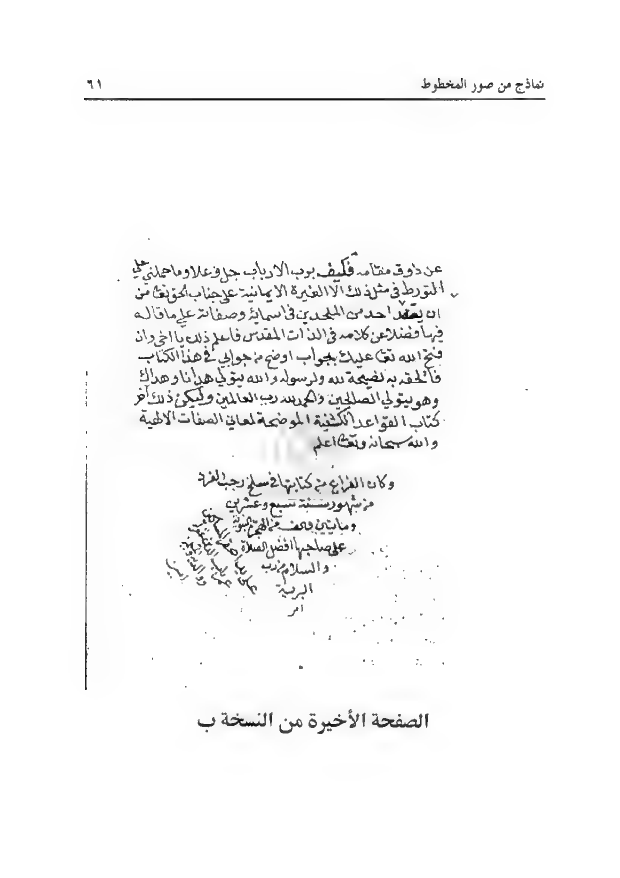 نماذج من صور المخطوط ٦١
عن ذوق مقامه فكيف برب الارباب جل وعلا وما حملني علي
التورط في مثل ذلك الا الغيرة الايمانية علي جناب الحق تعا من
ان يعتقد احد من الملحدين في اسمائه وصفاته علي ما قاله
فيها فضلا عن كلامه في الذات المقدس فاعلم ذلك يا اخي وان
فتح الله تعا عليك بجواب اوضح من جوابي في هذا الكتاب
فالحقه به نصيحة لله ولرسوله والله يتولي هدانا وهداك
وهو يتولي الصالحين والحمد لله رب العالمين وليكن ذلك آخر
كتاب القواعد الكشفية الموضحة لمعاني الصفات الالهية
والله سبحانه وتعا اعلم
وكان الفراغ من كتابتها في سلخ رجب الفرد
من شهور سنة تسع وعشرين
وماتين والف من الهجرة النبوية
علي صاحبها افضل الصلاة
والسلام رب
البرية
امر
علي يد
امين
الصفحة الأخيرة من النسخة ب